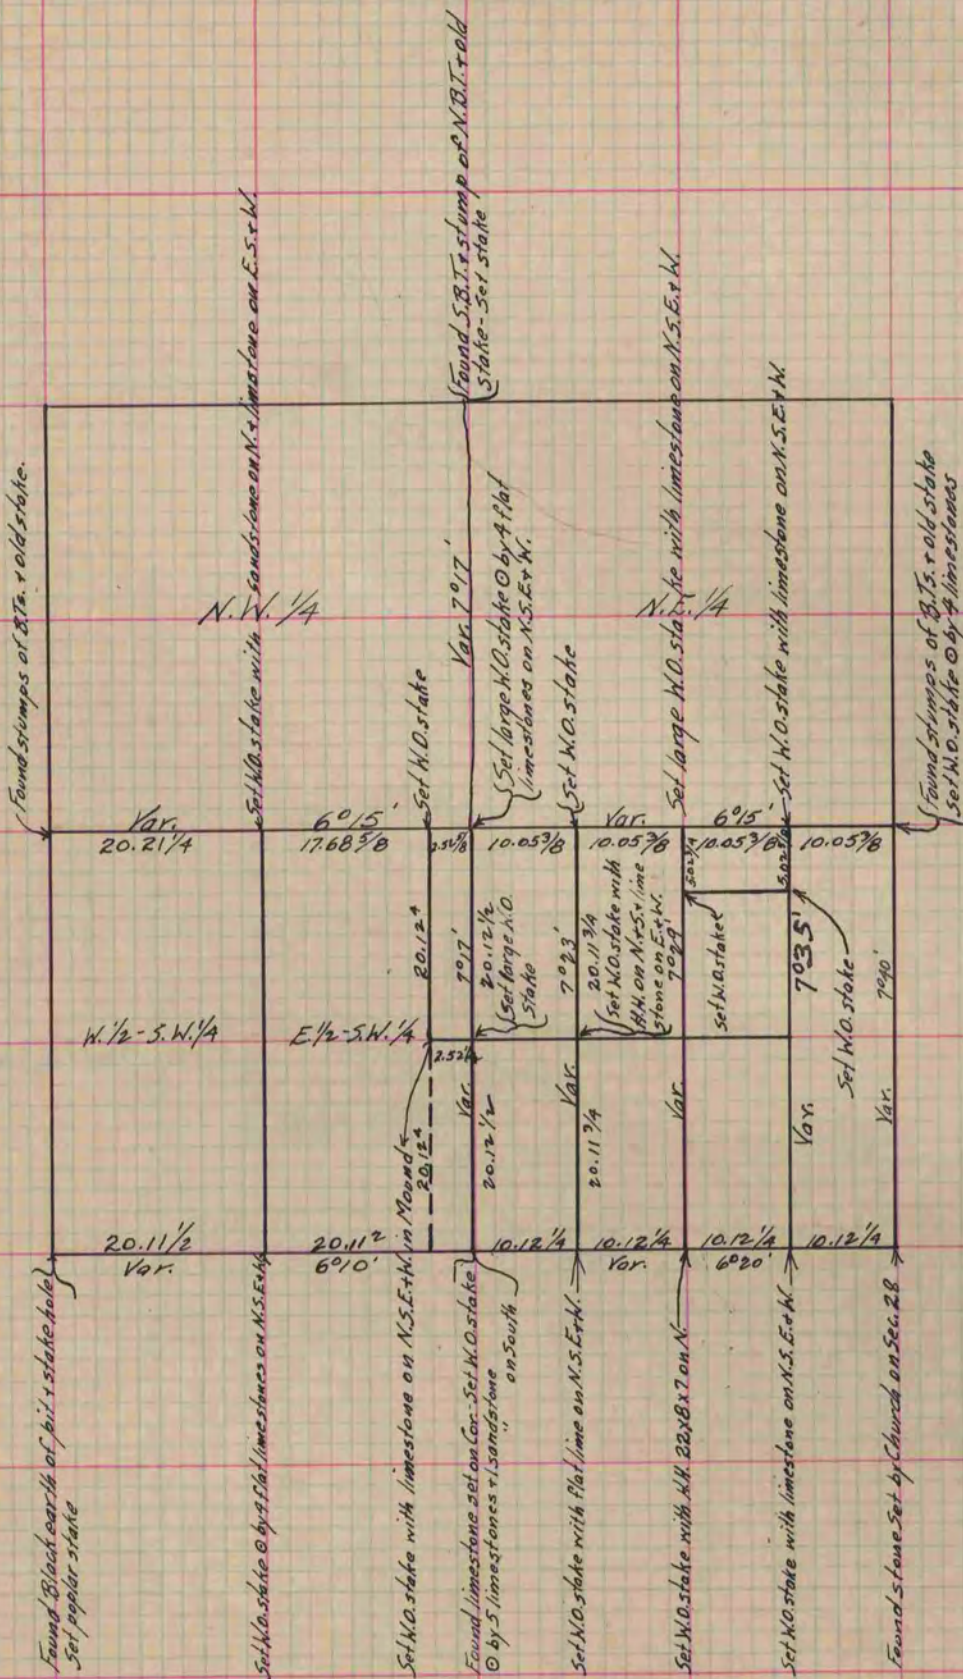 Found stumps of B.Ts. + old stake.
Set W.O. stake with sandstone on N. + limestone on E.S. + W.
Found S.B.T. + stump of N.B.T. + old
stake - Set stake
N.W. 1/4
N.E. 1/4
Set W.O. stake
Var. 7°17'
Set large W.O. stake ⊙ by 4 flat
limestones on N.S.E. + W.
Set W.O. stake
Set large W.O. stake with limestone on N.S.E. + W.
Set W.O. stake with limestone on N.S.E. + W.
Found stumps of B.Ts. + old stake
Set W.O. stake ⊙ by 4 limestones
Var.
6°15'
Var.
6°15'
20.21 1/4
17.68 5/8
10.05 3/8
10.05 3/8
10.05 3/8
10.05 3/8
20.12⁴
7°17'
20.12 1/2
Set large W.O.
Stake
7°23'
20.11 3/4
Set W.O. stake with
H.H. on N. + S. + lime
stone on E. + W.
7°29'
5.02 3/4
Set W.O. stake
7°35'
Set W.O. stake
7°40'
W. 1/2 - S.W. 1/4
E. 1/2 - S.W. 1/4
2.52 1/2
20.12⁴
Var.
20.12 1/2
Var.
20.11 3/4
Var.
Var.
Var.
20.11 1/2
20.11²
10.12 1/4
10.12 1/4
10.12 1/4
10.12 1/4
Var.
6°10'
Var.
6°20'
Found Black earth of pit + stake hole
Set poplar stake
Set W.O. stake ⊙ by 4 flat limestones on N.S.E. + W.
Set W.O. stake with limestone on N.S.E. + W. in Mound
Found limestone set on Cor. - Set W.O. stake
⊙ by 5 limestones + 1 sandstone
" on South
Set W.O. stake with flat lime on N.S.E. + W.
Set W.O. stake with H.H. 22x8x7 on N.
Set W.O. stake with limestone on N.S.E. + W.
Found stone Set by Church on Sec. 28